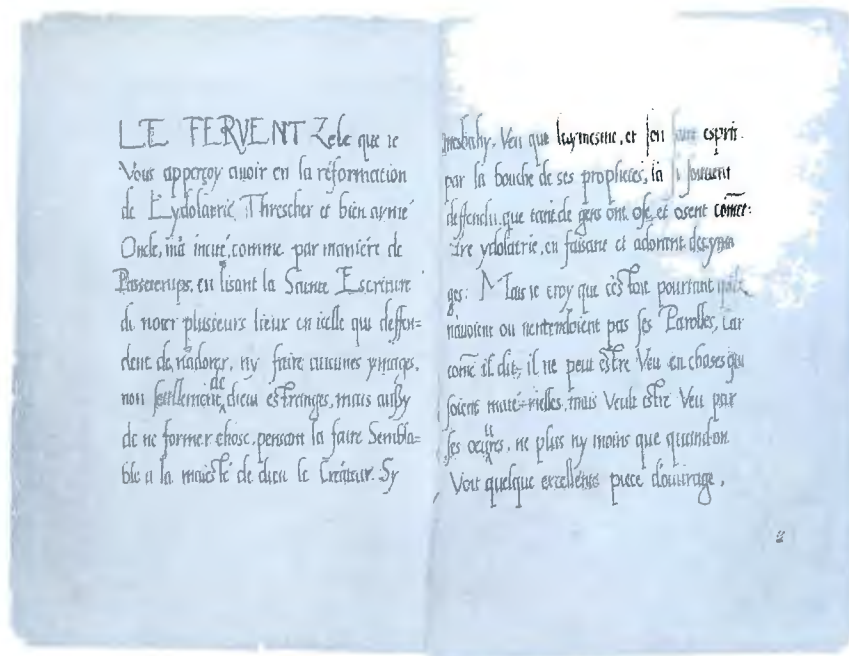 LE FERVENT Zele que ie
Vous apperçoy auoir en la réformation
de L'ydolatrie, Threscher et bien aymé
Oncle, m'à incité, comme par maniére de
Passetemps, en lisant la Saincte Escriture
de noter plusieurs lieux en icelle qui deffen=
dent de n'adorer, ny faire aucunes ymages,
non seullement de dieu estranges, mais aussy
de ne former chose, pensant la faire Sembla=
ble a la maiesté de dieu le Créateur. Sy
mesbahy, Veu que luy mesme, et son esprit
par la bouche de ses prophétes, la si souuent
deffendu, que tant de gens ont osé, et osent comet:
tre ydolatrie, en faisant et adorant des yma
ges: Mais ie croy que c'estoit pourtant
n'auoient ou n'entendoient pas ses Parolles, Car
comē il dit, il ne peut estre Veu en choses qui
soient mate-rielles, mais Veult estre Veu par
ses oeuures, ne plus ny moins que quand on
Voit quelque excellente piece d'ouurage,